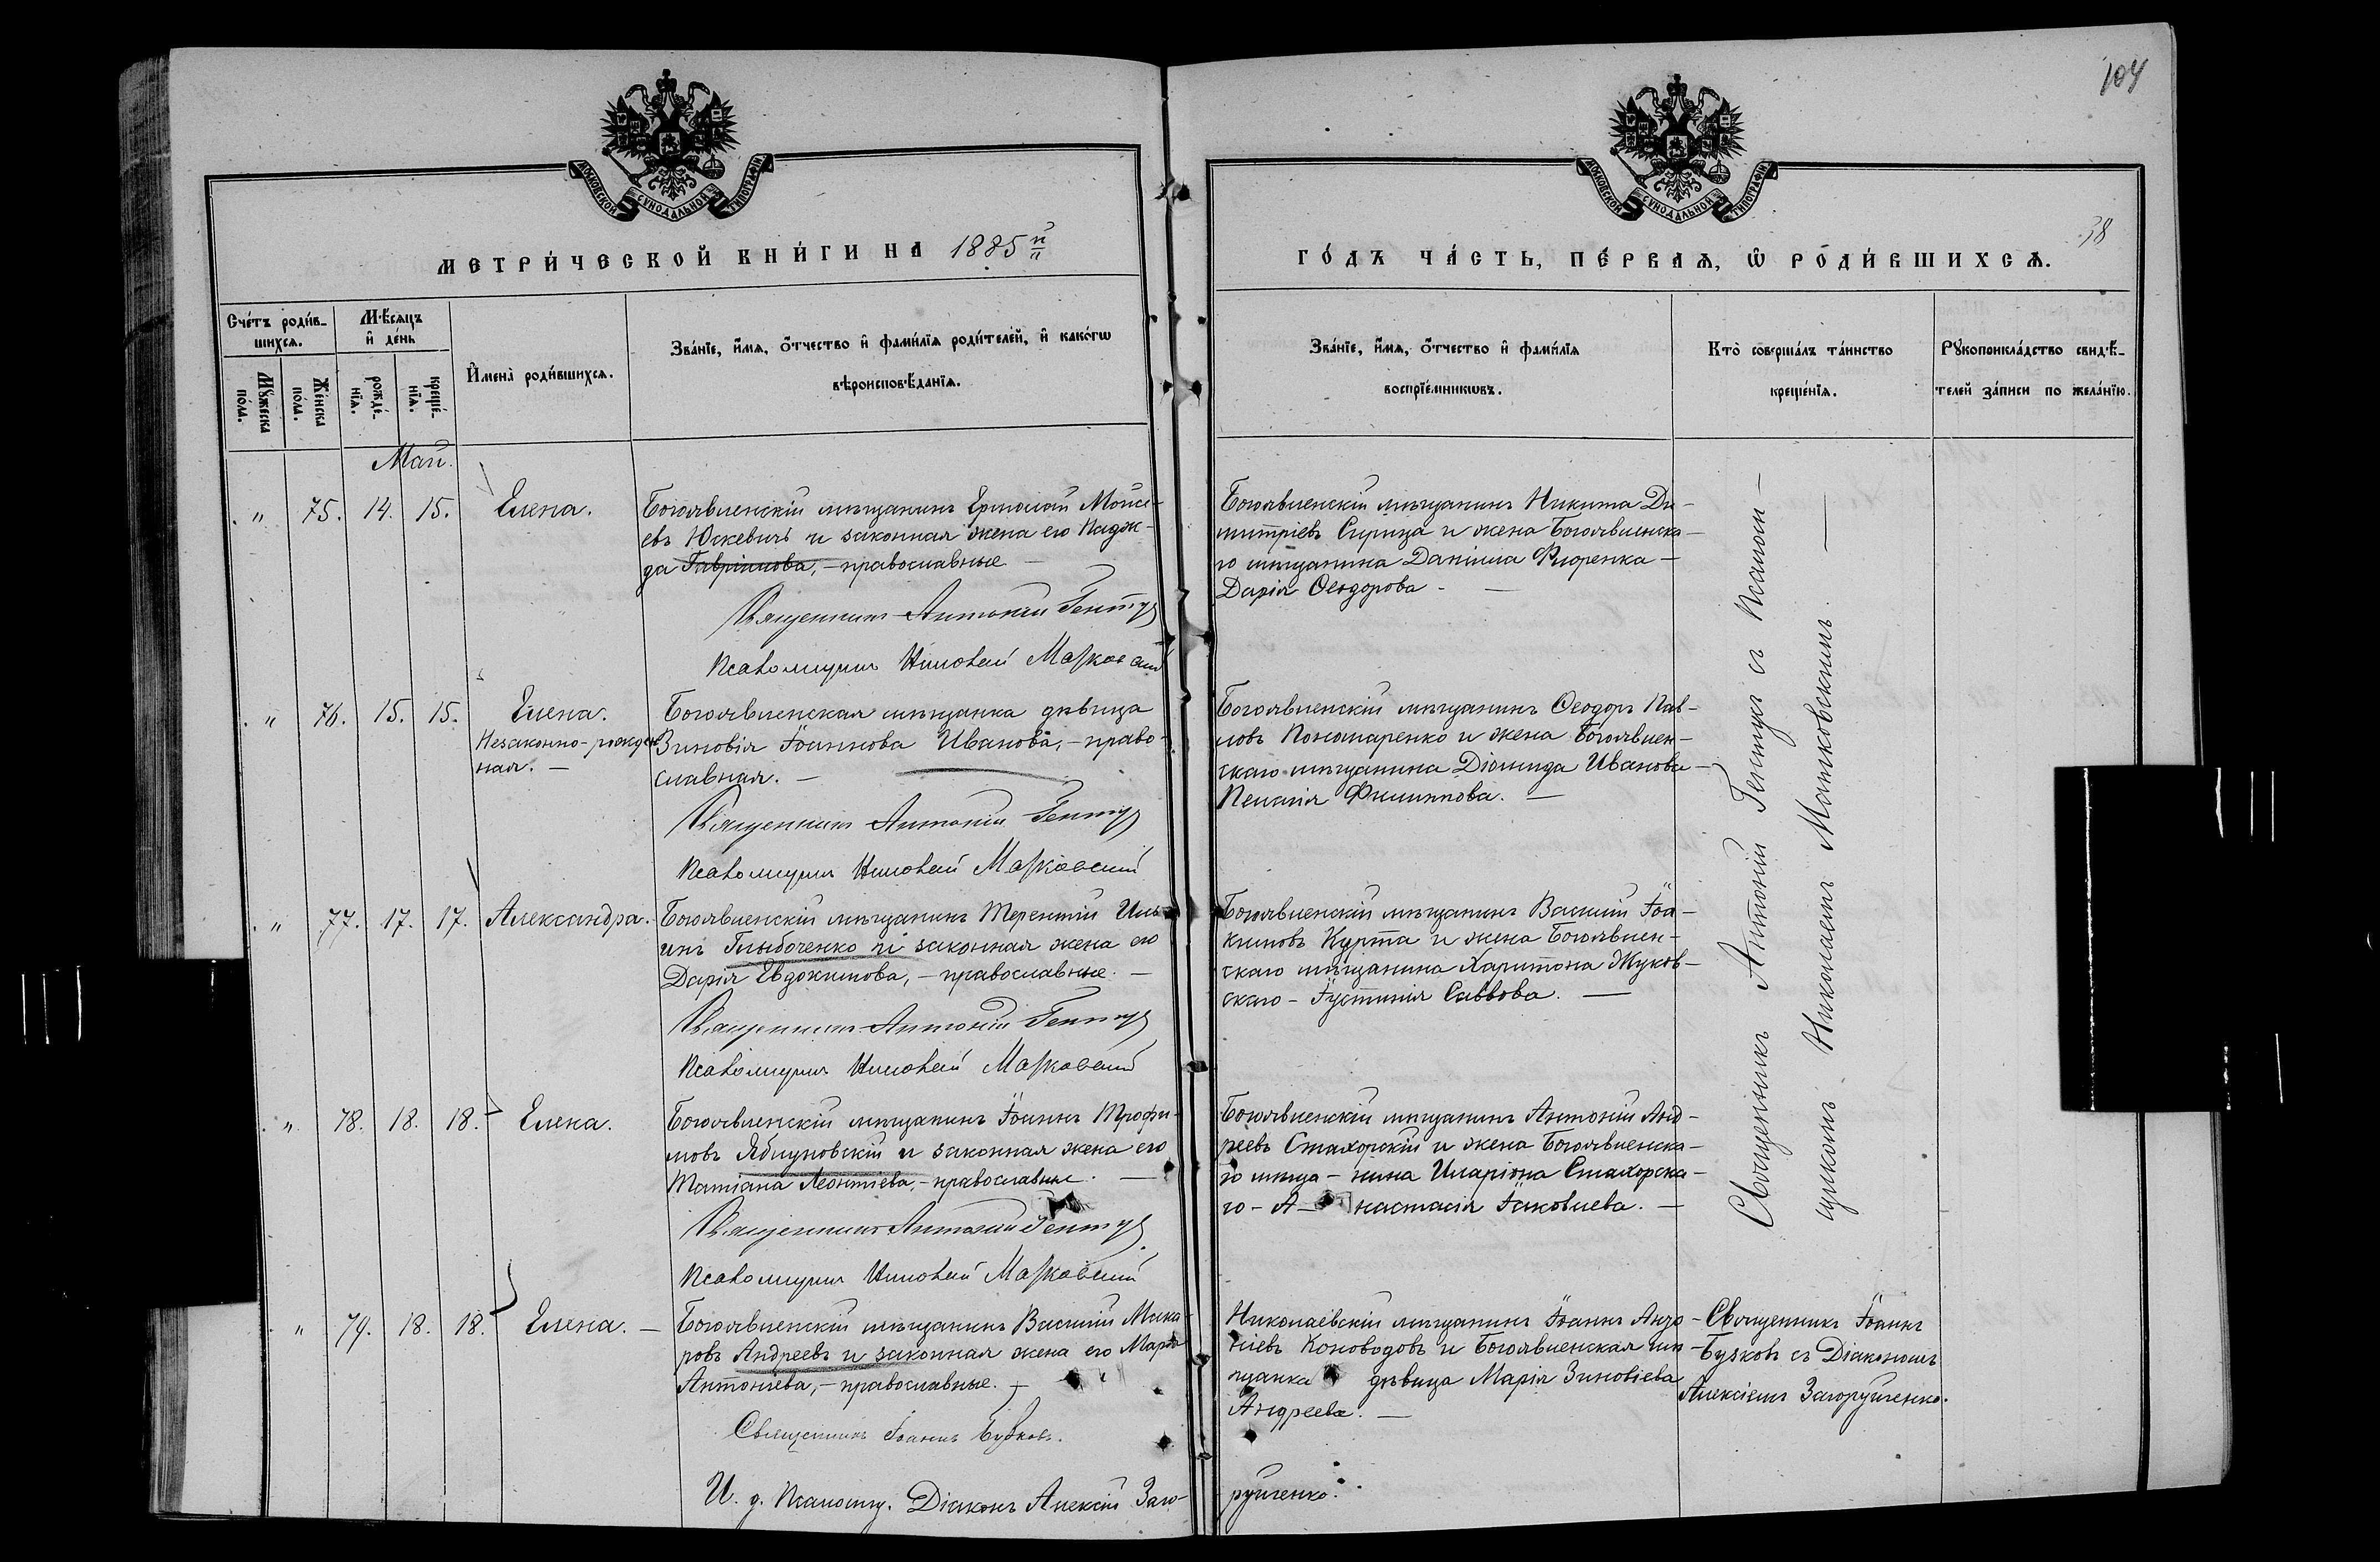 104
МОСКОВСКОЙ СѴНОДАЛЬНОЙ ТИПОГРАФІИ
МОСКОВСКОЙ СѴНОДАЛЬНОЙ ТИПОГРАФІИ
38
МЕТРИ́ЧЕСКОЙ КНИ́ГИ НА 1885й
ГО́ДЪ ЧА́СТЬ, ПЕ́РВАѦ, Ѡ РОДИ́ВШИХСѦ.
Сче́тъ роди́в-
шихсѧ.
Мꙋжеска по́ла.
Же́нска по́ла.
Мѣ́сѧцъ
и҆ де́нь
рожде́-
нїѧ.
креще́-
нїѧ.
И҆мена̀ роди́вшихсѧ.
Зва́нїе, и҆́мѧ, ѻ҆́тчество и҆ фами́лїѧ роди́телей, и҆ како́гѡ
вѣроисповѣ́данїѧ.
Зва́нїе, и҆́мѧ, ѻ҆́тчество и҆ фами́лїѧ
воспрїе́мникѡвъ.
Кто̀ соверша́лъ та́инство
креще́нїѧ.
Рꙋкоприкла́дство свидѣ́-
телей за́писи по жела́нїю.
Май.
" 75. 14. 15. Елена.
Богоявленскій мѣщанинъ Ермолай Моисе-
евъ Юскевичъ и законная жена его Надеж-
да Гавріилова, - православные
Священникъ Антоній Гентус
Псаломщикъ Николай Матковскій
Богоявленскій мѣщанинъ Никита Ди-
митріевъ Сирица и жена Богоявленска-
го мѣщанина Даніила Фіоренка -
Дарія Ѳеодорова -
" 76. 15. 15. Елена.
Незаконно-рожден-
ная. -
Богоявленская мѣщанка дѣвица
Зиновія Іоаннова Иванова, - право-
славная. -
Священникъ Антоній Гентус
Псаломщикъ Николай Матковскій
Богоявленскій мѣщанинъ Ѳеодоръ Пав-
ловъ Пономаренко и жена Богоявлен-
скаго мѣщанина Діомида Иванова -
Пелагія Филиппова. -
" 77. 17. 17. Александра.
Богоявленскій мѣщанинъ Терентій Иль-
инъ Глыбоченко и законная жена его
Дарія Евдокимова, - православные. -
Священникъ Антоній Гентус
Псаломщикъ Николай Матковскій
Богоявленскій мѣщанинъ Василій Іоа-
кимовъ Курта и жена Богоявлен-
скаго мѣщанина Харитона Жуков-
скаго - Іустинія Саввова. -
" 78. 18. 18. Елена.
Богоявленскій мѣщанинъ Іоаннъ Трофи-
мовъ Яблуновскій и законная жена его
Татіана Леонтіева, - православные. -
Священникъ Антоній Гентус
Псаломщикъ Николай Матковскій
Богоявленскій мѣщанинъ Антоній Анд-
реевъ Стахорскій и жена Богоявленска-
го мѣща - нина Иларіона Стахорска-
го - А - настасія Іаковлева. -
Священникъ Антоній Гентус съ псалом-
щикомъ Николаемъ Матковскимъ.
" 79. 18. 18. Елена. -
Богоявленскій мѣщанинъ Василій Мака-
ровъ Андреевъ и законная жена его Марѳа
Антоніева, - православные. -
Священникъ Іоаннъ Бузковъ.
И. д. Псаломщ. Діаконъ Алексій Заго-
руйченко.
Николаевскій мѣщанинъ Іоаннъ
Коноводовъ и Богоявленская мѣ-
щанка дѣвица Марія Зиновіева
Андреева. -
Священникъ Іоаннъ
Бузковъ съ Діакономъ
Алексіемъ Загоруйченко.